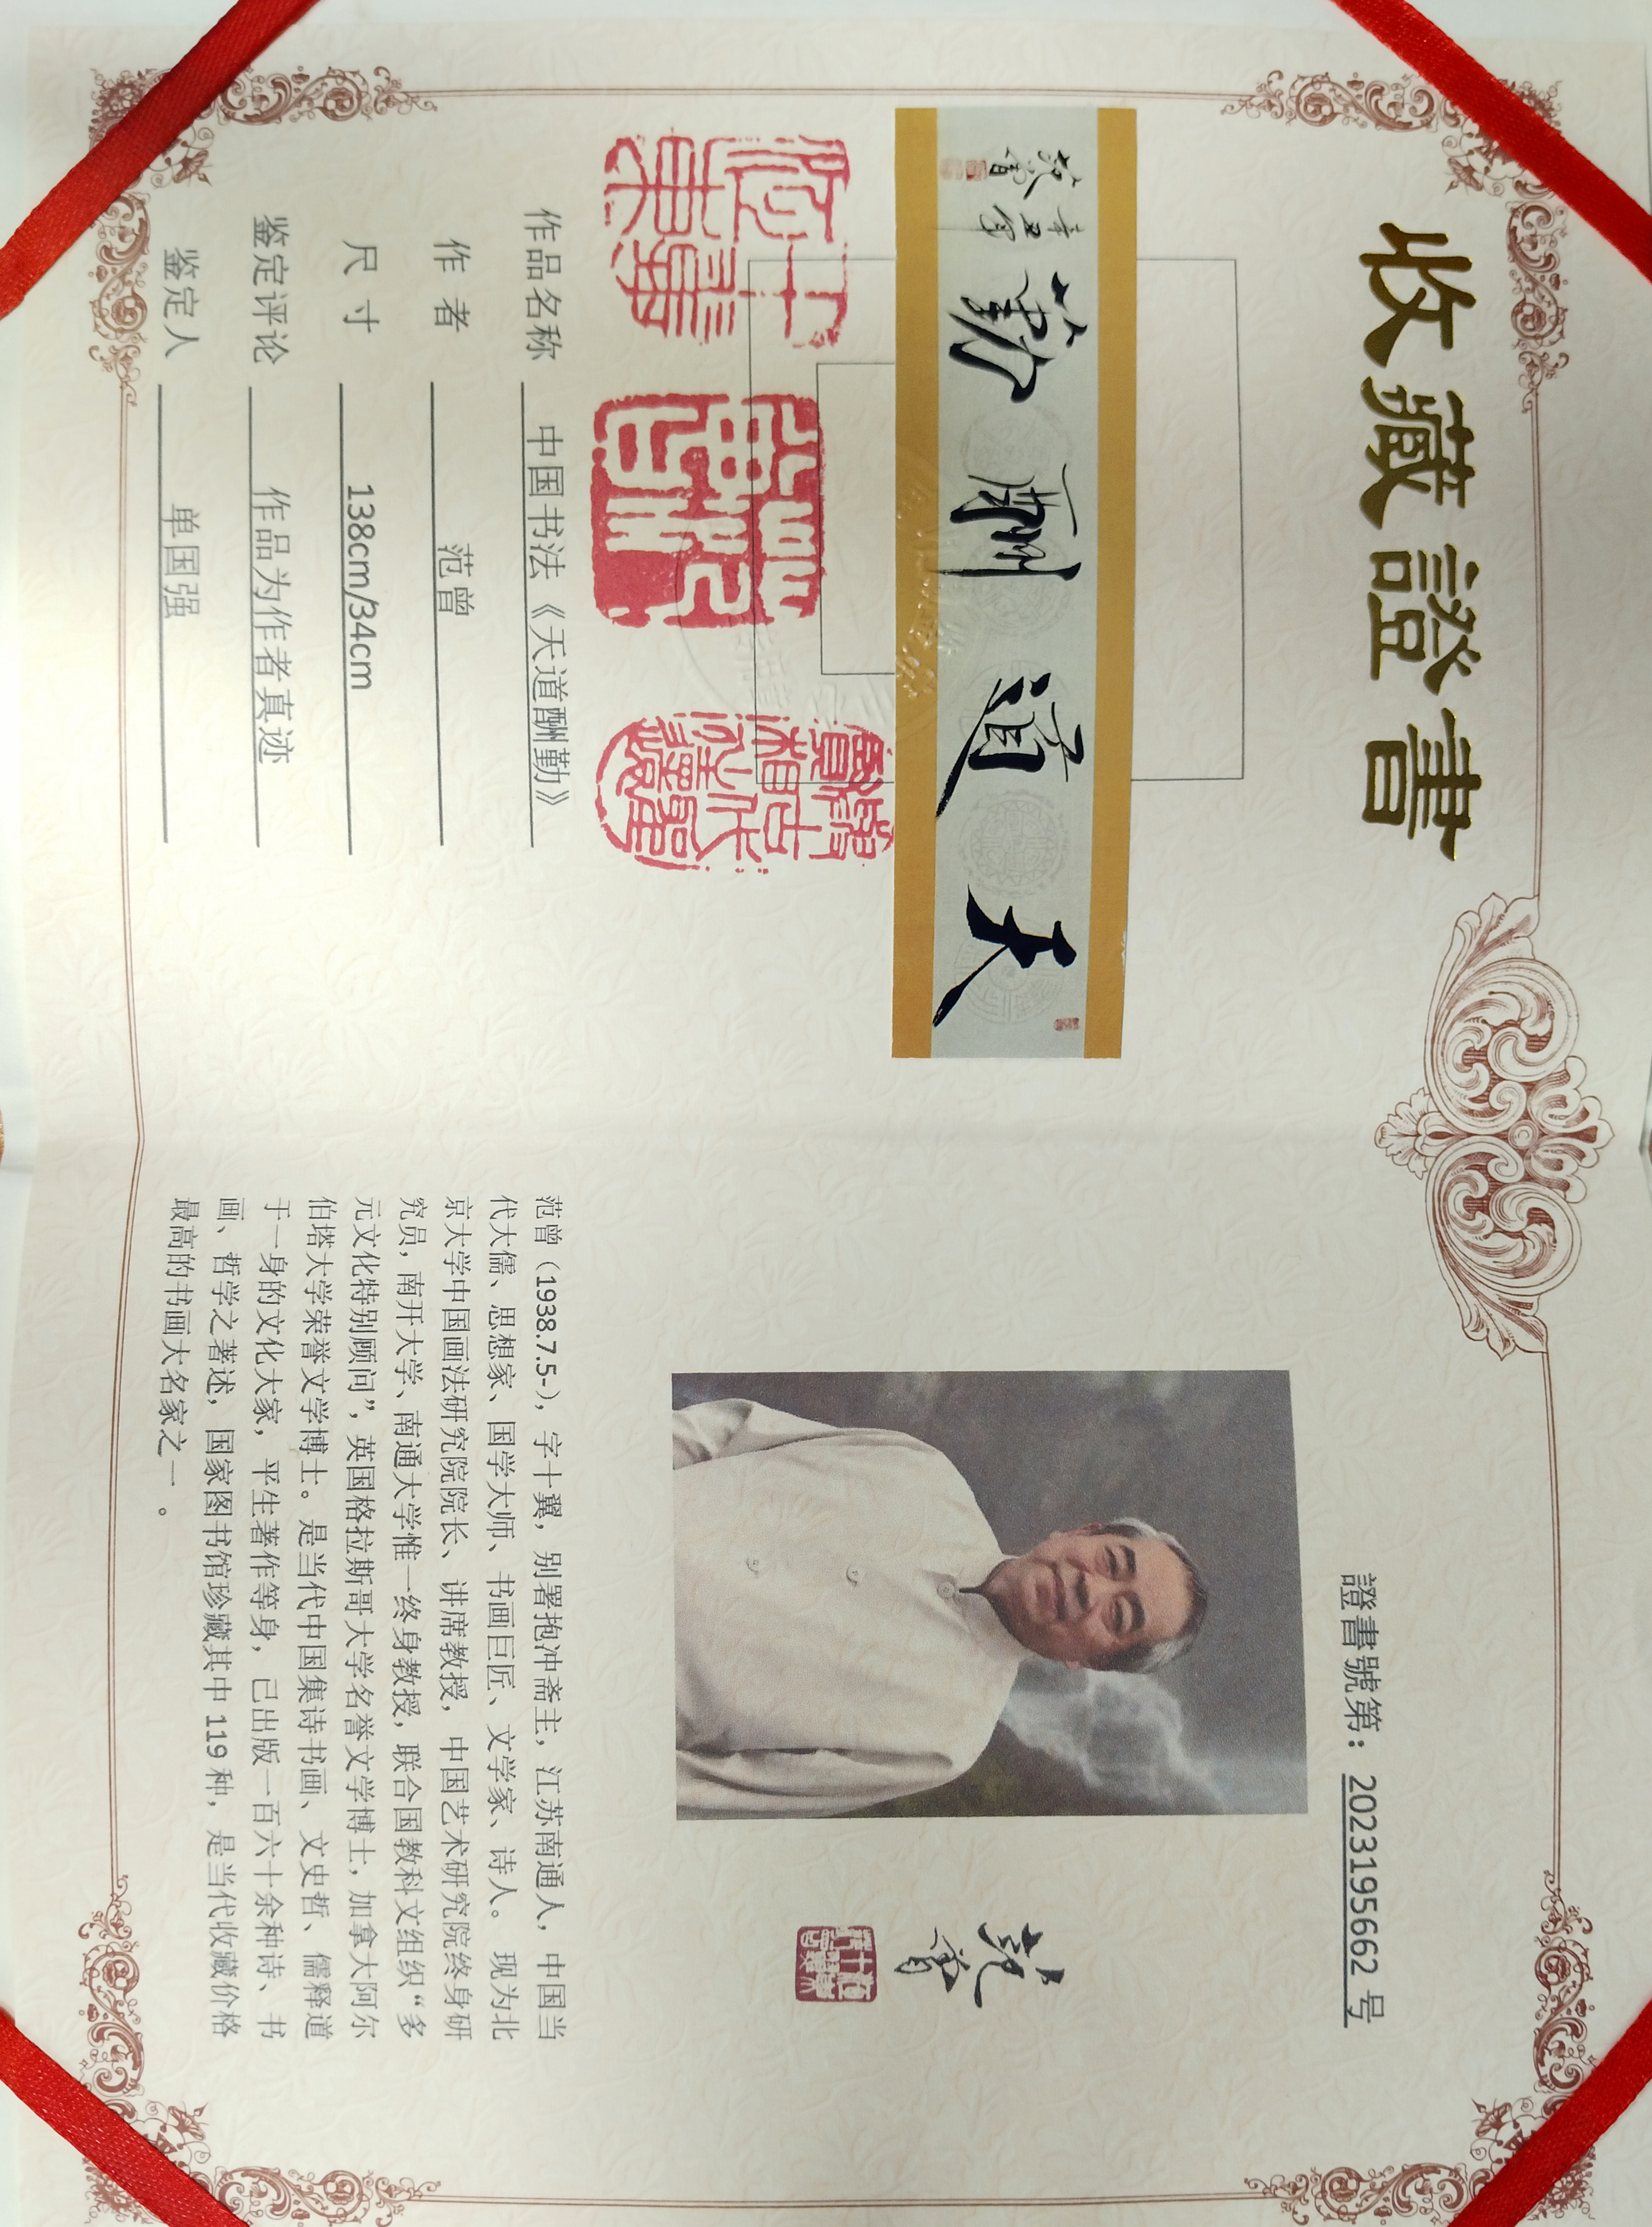 收藏證書
天道酬勤
辛丑年
范曾
作品名称 中国书法《天道酬勤》
作者 范曾
尺寸 138cm/34cm
鉴定评论 作品为作者真迹
鉴定人 单国强
證書號第：2023195662 号
范曾
范曾（1938.7.5-），字十翼，别署抱冲斋主，江苏南通人，中国当
代大儒、思想家、国学大师、书画巨匠、文学家、诗人。 现为北
京大学中国画法研究院院长、讲席教授，中国艺术研究院终身研
究员，南开大学、南通大学惟一终身教授，联合国教科文组织“多
元文化特别顾问”，英国格拉斯哥大学名誉文学博士，加拿大阿尔
伯塔大学荣誉文学博士。是当代中国集诗书画、文史哲、儒释道
于一身的文化大家，平生著作等身，已出版一百六十余种诗、书
画、哲学之著述，国家图书馆珍藏其中 119 种，是当代收藏价格
最高的书画大名家之一 。